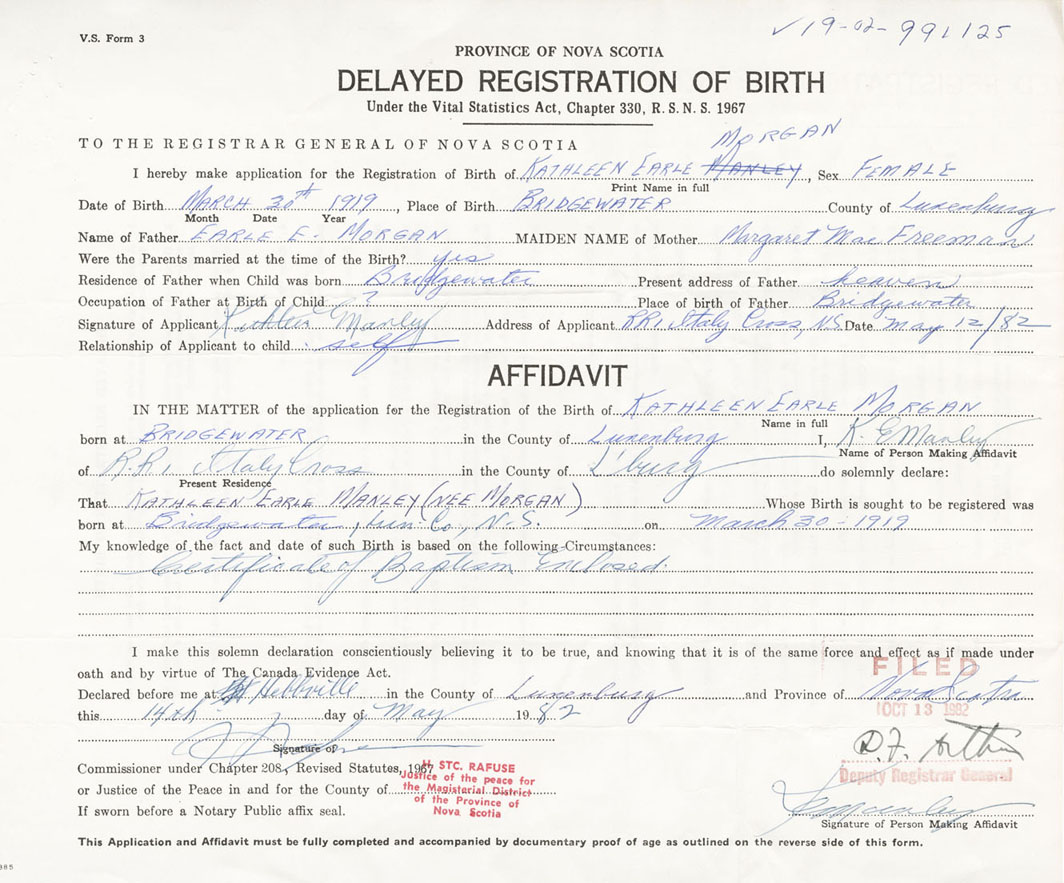 V.S. Form 3
✓ 19-02-991125
PROVINCE OF NOVA SCOTIA
DELAYED REGISTRATION OF BIRTH
Under the Vital Statistics Act, Chapter 330, R. S. N. S. 1967
TO THE REGISTRAR GENERAL OF NOVA SCOTIA
MORGAN
I hereby make application for the Registration of Birth of KATHLEEN EARLE MANLEY, Sex FEMALE
Print Name in full
Date of Birth MARCH 30th 1919, Place of Birth BRIDGEWATER County of Lunenburg
Month Date Year
Name of Father EARLE E. MORGAN MAIDEN NAME of Mother Margaret Mae Freeman
Were the Parents married at the time of the Birth? yes
Residence of Father when Child was born Bridgewater Present address of Father heaven
Occupation of Father at Birth of Child ? Place of birth of Father Bridgewater
Signature of Applicant Kathleen Manley Address of Applicant RR1 Italy Cross, N.S. Date May 12/82
Relationship of Applicant to child self
AFFIDAVIT
IN THE MATTER of the application for the Registration of the Birth of KATHLEEN EARLE MORGAN
Name in full
born at BRIDGEWATER in the County of Lunenburg I, K. E Manley
Name of Person Making Affidavit
of R.R1 Italy Cross in the County of L'burg do solemnly declare:
Present Residence
That KATHLEEN EARLE MANLEY (NEE MORGAN) Whose Birth is sought to be registered was
born at Bridgewater, Lun. Co., N.S. on March 30 - 1919
My knowledge of the fact and date of such Birth is based on the following Circumstances:
Certificate of Baptism Enclosed.
I make this solemn declaration conscientiously believing it to be true, and knowing that it is of the same force and effect as if made under
oath and by virtue of The Canada Evidence Act.
FILED
Declared before me at Hebbville in the County of Lunenburg and Province of Nova Scotia
OCT 13 1982
this 14th day of May 1982
Signature of
Commissioner under Chapter 208, Revised Statutes, 1967
or Justice of the Peace in and for the County of
If sworn before a Notary Public affix seal.
H. STC. RAFUSE
Justice of the peace for
the Magisterial District
of the Province of
Nova Scotia
Deputy Registrar General
Signature of Person Making Affidavit
This Application and Affidavit must be fully completed and accompanied by documentary proof of age as outlined on the reverse side of this form.